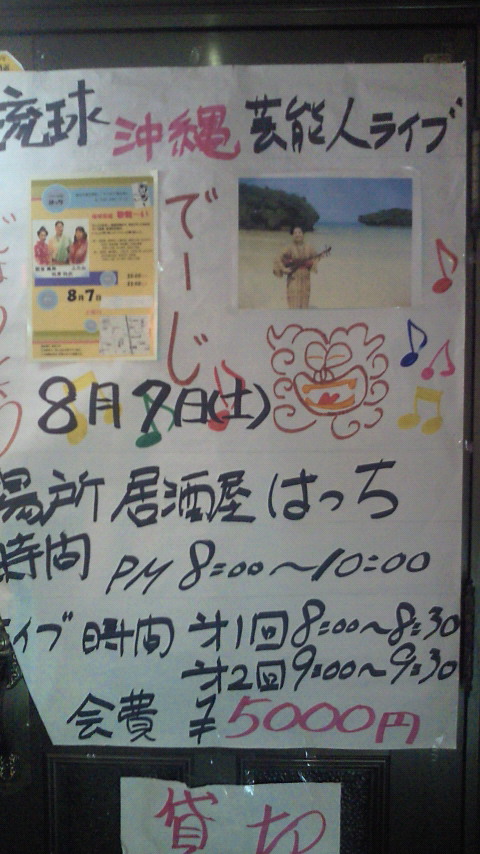 琉球 沖縄 芸能人ライブ
でーじ
8月7日
8月7日(土)
場所 居酒屋 はっち
時間 PM 8:00~10:00
ライブ時間 才1回 8:00~8:30
才2回 9:00~9:30
会費 ¥5000円
貸切